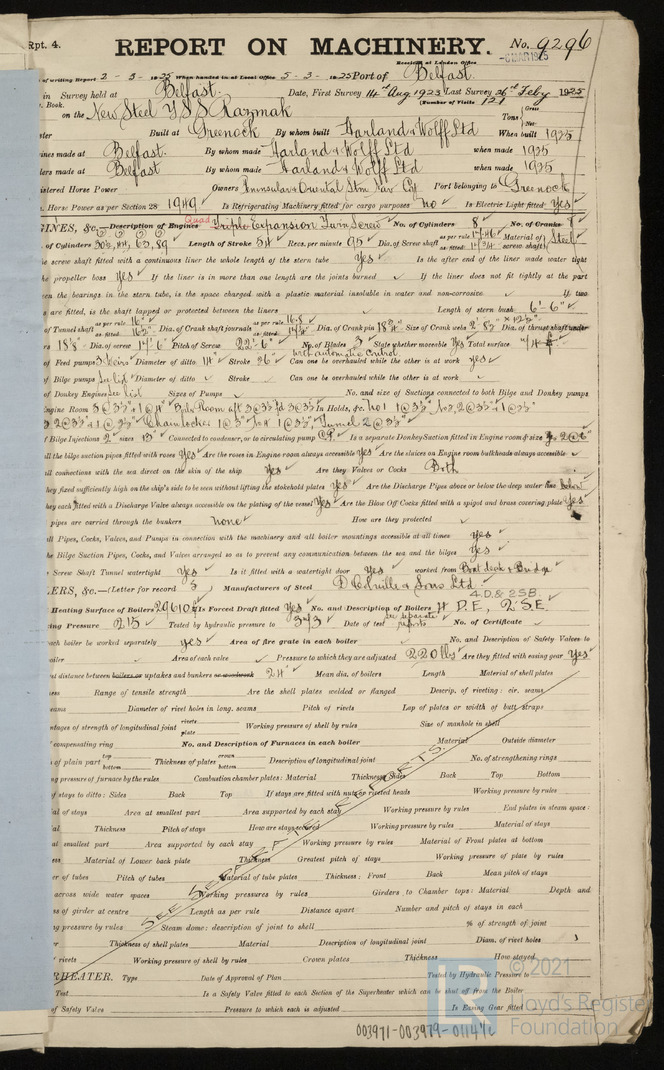 Rpt. 4. REPORT ON MACHINERY. No. 9296
Received at London Office
of writing Report 2-3-1925 When handed in at Local Office 5-3-1925 Port of Belfast.
in Survey held at Belfast. Date, First Survey 14th Aug 1923 Last Survey 26th Feby 1925
Book. (Number of Visits 121)
on the New Steel T.S.S Razmak Tons Gross Net
Built at Greenock By whom built Harland & Wolff Ltd When built 1925
ines made at Belfast. By whom made Harland & Wolff Ltd when made 1925
ers made at Belfast By whom made Harland & Wolff Ltd when made 1925
istered Horse Power Owners Peninsular & Oriental Stm Nav Coy Port belonging to Greenock
Horse Power as per Section 28 1949 Is Refrigerating Machinery fitted for cargo purposes no Is Electric Light fitted yes
GINES, &c.—Description of Engines Quad Triple Expansion Twin Screw No. of Cylinders 8 No. of Cranks 8
of Cylinders Length of Stroke 54 Revs. per minute 95 Dia. of Screw shaft as per rule as fitted Material of screw shaft Steel
e screw shaft fitted with a continuous liner the whole length of the stern tube Yes Is the after end of the liner made water tight
he propeller boss Yes If the liner is in more than one length are the joints burned If the liner does not fit tightly at the part
een the bearings in the stern tube, is the space charged with a plastic material insoluble in water and non-corrosive If two
s are fitted, is the shaft lapped or protected between the liners Length of stern bush 6'-6"
of Tunnel shaft as per rule as fitted Dia. of Crank shaft journals as per rule as fitted Dia. of Crank pin 18¾ Size of Crank webs Dia. of thrust shaft under
rs Dia. of screw 17'6" Pitch of Screw 22'-6" No. of Blades 3 State whether moveable Yes Total surface
of Feed pumps Diameter of ditto 14" Stroke 26" with automatic control Can one be overhauled while the other is at work yes
of Bilge pumps See list Diameter of ditto Stroke Can one be overhauled while the other is at work
of Donkey Engines See list Sizes of Pumps No. and size of Suctions connected to both Bilge and Donkey pumps
ngine Room In Holds, &c. No 1
Tunnel
f Bilge Injections 2 sizes 13" Connected to condenser, or to circulating pump C.P. Is a separate Donkey Suction fitted in Engine room & size
all the bilge suction pipes fitted with roses Yes Are the roses in Engine room always accessible Yes Are the sluices on Engine room bulkheads always accessible
all connections with the sea direct on the skin of the ship Yes Are they Valves or Cocks Both
they fixed sufficiently high on the ship's side to be seen without lifting the stokehold plates Yes Are the Discharge Pipes above or below the deep water line below
they each fitted with a Discharge Valve always accessible on the plating of the vessel Yes Are the Blow Off Cocks fitted with a spigot and brass covering plate Yes
pipes are carried through the bunkers none How are they protected
all Pipes, Cocks, Valves, and Pumps in connection with the machinery and all boiler mountings accessible at all times yes
he Bilge Suction Pipes, Cocks, and Valves arranged so as to prevent any communication between the sea and the bilges yes
Screw Shaft Tunnel watertight Yes Is it fitted with a watertight door Yes worked from Boat deck & Bridge
ERS, &c.—(Letter for record S) Manufacturers of Steel D. Colville & Sons Ltd
4.D.& 2 S.B.
Heating Surface of Boilers 29610 Is Forced Draft fitted Yes No. and Description of Boilers 4 D.E, 2 S.E.
ing Pressure 215 Tested by hydraulic pressure to 373 Date of test See separate reports No. of Certificate
each boiler be worked separately yes Area of fire grate in each boiler No. and Description of Safety Valves to
oiler Area of each valve Pressure to which they are adjusted 220 lbs Are they fitted with easing gear Yes
st distance between boilers or uptakes and bunkers or woodwork 24" Mean dia. of boilers Length Material of shell plates
ness Range of tensile strength Are the shell plates welded or flanged Descrip. of riveting: cir. seams
seams Diameter of rivet holes in long. seams Pitch of rivets Lap of plates or width of butt straps
ntages of strength of longitudinal joint rivets plate Working pressure of shell by rules Size of manhole in shell
f compensating ring No. and Description of Furnaces in each boiler Material Outside diameter
of plain part top bottom Thickness of plates crown bottom Description of longitudinal joint No. of strengthening rings
ng pressure of furnace by the rules Combustion chamber plates: Material Thickness: Sides Back Top Bottom
of stays to ditto: Sides Back Top If stays are fitted with nuts or riveted heads Working pressure by rules
al of stays Area at smallest part Area supported by each stay Working pressure by rules End plates in steam space:
ial Thickness Pitch of stays How are stays secured Working pressure by rules Material of stays
at smallest part Area supported by each stay Working pressure by rules Material of Front plates at bottom
ess Material of Lower back plate Thickness Greatest pitch of stays Working pressure of plate by rules
er of tubes Pitch of tubes Material of tube plates Thickness: Front Back Mean pitch of stays
across wide water spaces Working pressures by rules Girders to Chamber tops: Material Depth and
ss of girder at centre Length as per rule Distance apart Number and pitch of stays in each
ng pressure by rules Steam dome: description of joint to shell % of strength of joint
SEE SEPARATE REPORTS.
er Thickness of shell plates Material Description of longitudinal joint Diam. of rivet holes
f rivets Working pressure of shell by rules Crown plates Thickness How stayed
RHEATER. Type Date of Approval of Plan Tested by Hydraulic Pressure to
Test Is a Safety Valve fitted to each Section of the Superheater which can be shut off from the Boiler
of Safety Valve Pressure to which each is adjusted Is Easing Gear fitted
© 2021
Lloyd's Register
Foundation
003971-003979-0114 1/2